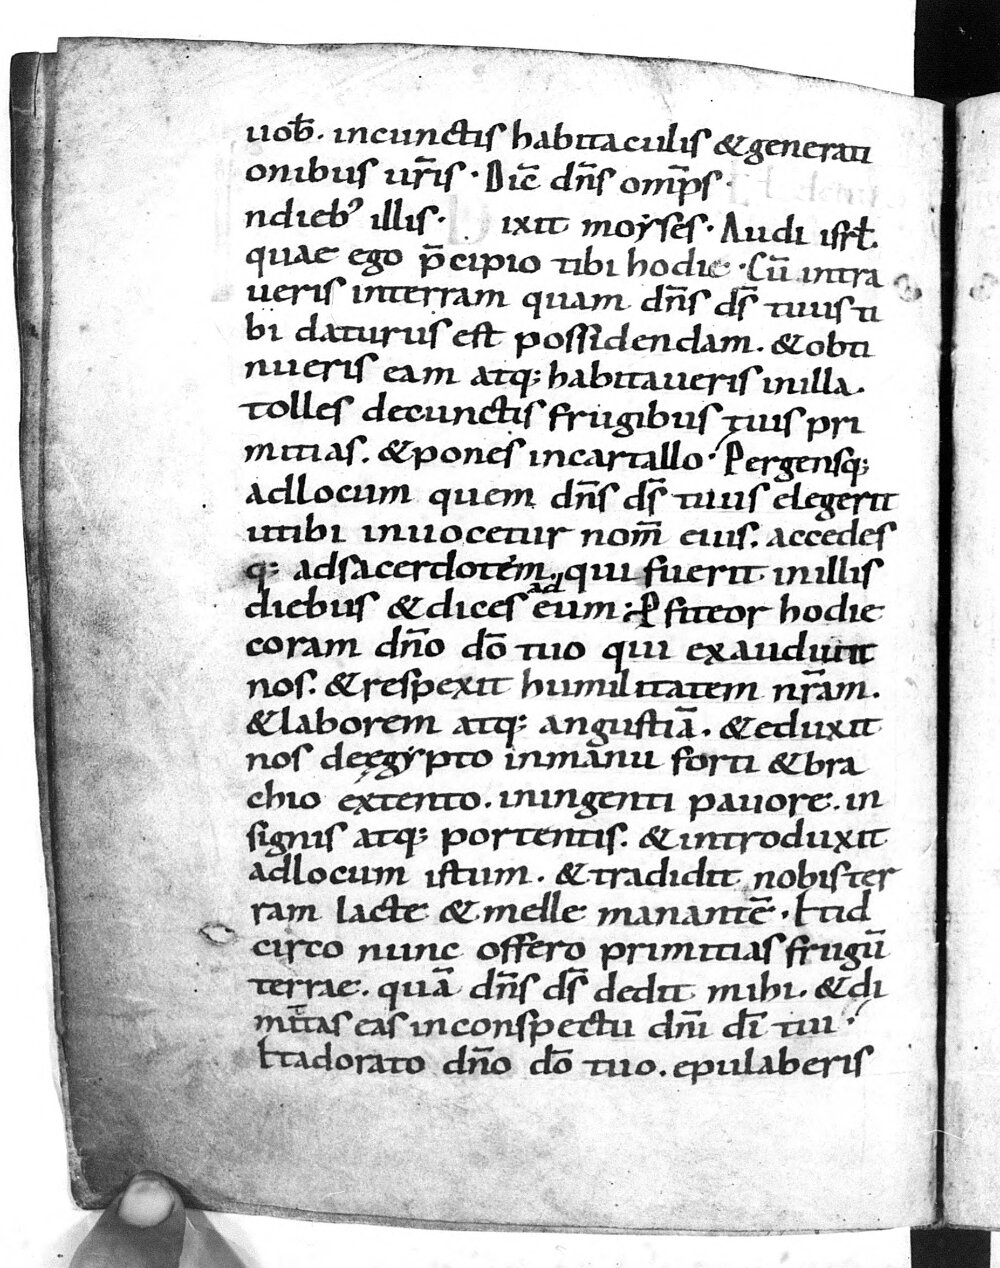 uob̅. incunctis habitaculis &generati
onibus ur̅is. Dic̅ dn̅s omp̅s.
ndieb; illis. ixit moyses. Audi isrl̅.
quae ego p̅cipio tibi hodie. Cu̅ intra
ueris interram quam dn̅s ds̅ tuus ti
bi daturus est possidendam. &obti
nueris eam atq; habitaueris inilla.
tolles decunctis frugibus tuis pri
mitias. &pones incartallo. Pergensq;
adlocum quem dn̅s ds̅ tuus elegerit
utibi inuocetur nom̅ eius. accedes
q; adsacerdotem. qui fuerit inillis
diebus &dices ad eum; Ꝓfiteor hodie
coram dn̅o do̅ tuo qui exaudiuit
nos. &respexit humilitatem nr̅am.
&laborem atq; angustia̅. &eduxit
nos deęgypto inmanu forti &bra
chio extento. iningenti pauore. in
signis atq; portentis. &introduxit
adlocum istum. &tradidit nobis ter
ram lacte &melle manante̅. Etid
circo nunc offero primitias frugu̅
terrae. qua̅ dn̅s ds̅ dedit mihi. &di
mittas eas inconspectu dn̅i di̅ tui.
Etadorato dn̅o do̅ tuo. epulaberis